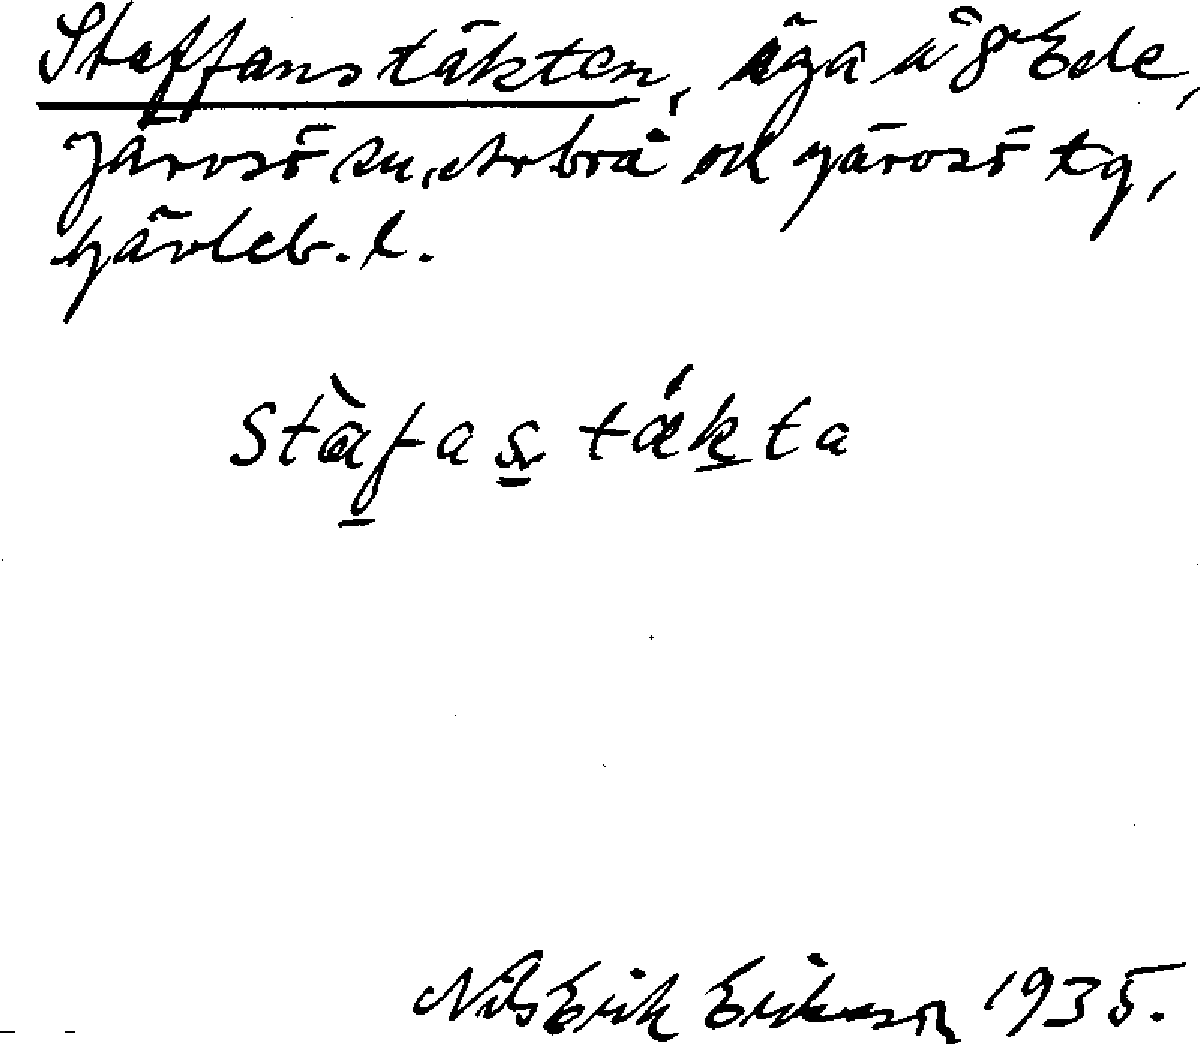 Staffanstäkten, äga å 8 Ede,
Järvsö sn, Arbrå och Järvsö tg,
Gävleb. l.
stàfas tǽkta
Nils Erik Eriksson 1935.